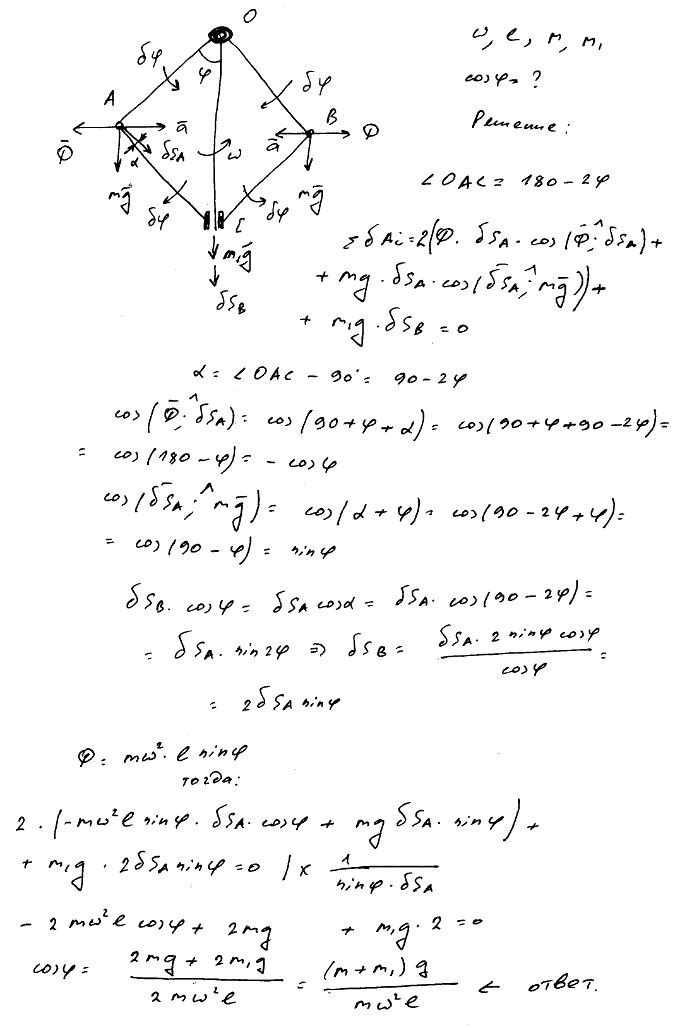 O
δφ
φ
δφ
A
B
Φ̄
ā
ā
Φ
α
δS_A
ω
mḡ
mḡ
δφ
δφ
C
m₁ḡ
δS_B
ω, l, m, m₁
cosφ = ?
Решение:
∠OAC = 180 - 2φ
Σ δA_i = 2(Φ · δS_A · cos(Φ̄;^δS_A) +
+ mg · δS_A · cos(δS̄_A;^mḡ)) +
+ m₁g · δS_B = 0
α = ∠OAC - 90° = 90 - 2φ
cos(Φ̄;^δS_A) = cos(90 + φ + α) = cos(90 + φ + 90 - 2φ) =
= cos(180 - φ) = - cosφ
cos(δS̄_A;^mḡ) = cos(α + φ) = cos(90 - 2φ + φ) =
= cos(90 - φ) = sinφ
δS_B · cosφ = δS_A cosα = δS_A · cos(90 - 2φ) =
= δS_A · sin2φ ⇒ δS_B = (δS_A · 2 sinφ cosφ) / cosφ =
= 2δS_A sinφ
Φ = mω² · l sinφ
тогда:
2 · (-mω²l sinφ · δS_A · cosφ + mg δS_A · sinφ) +
+ m₁g · 2δS_A sinφ = 0 | × 1 / (sinφ · δS_A)
- 2mω²l cosφ + 2mg + m₁g · 2 = 0
cosφ = (2mg + 2m₁g) / (2mω²l) = ((m + m₁)g) / (mω²l) ← ответ.